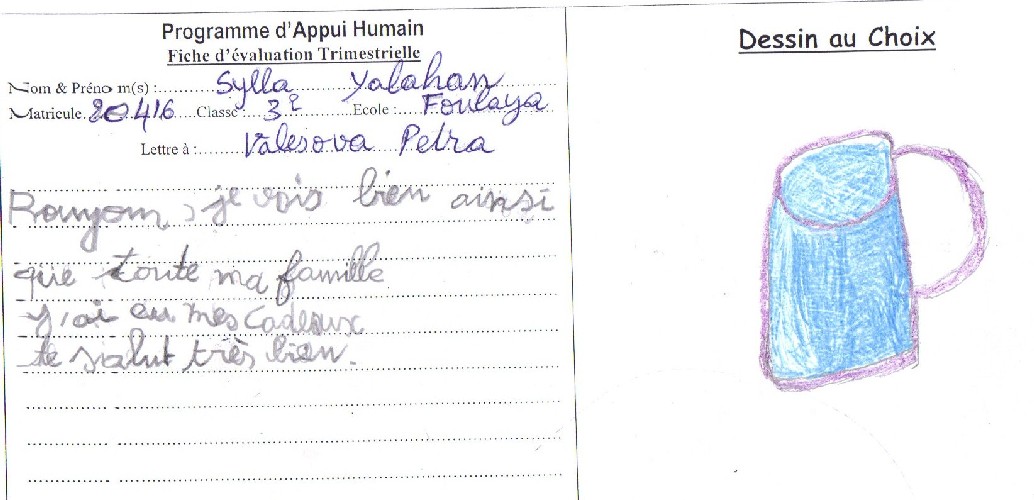 Programme d'Appui Humain
Fiche d'évaluation Trimestrielle
Nom & Préno m(s) : Sylla Yalahan
Matricule 20416 Classe : 3e Ecole : Foulaya
Lettre à : Valesova Petra
Bonjom, je vois bien ainsi
que toute ma famille
j'ai eu mes Cadeaux
te salut très bien.
Dessin au Choix